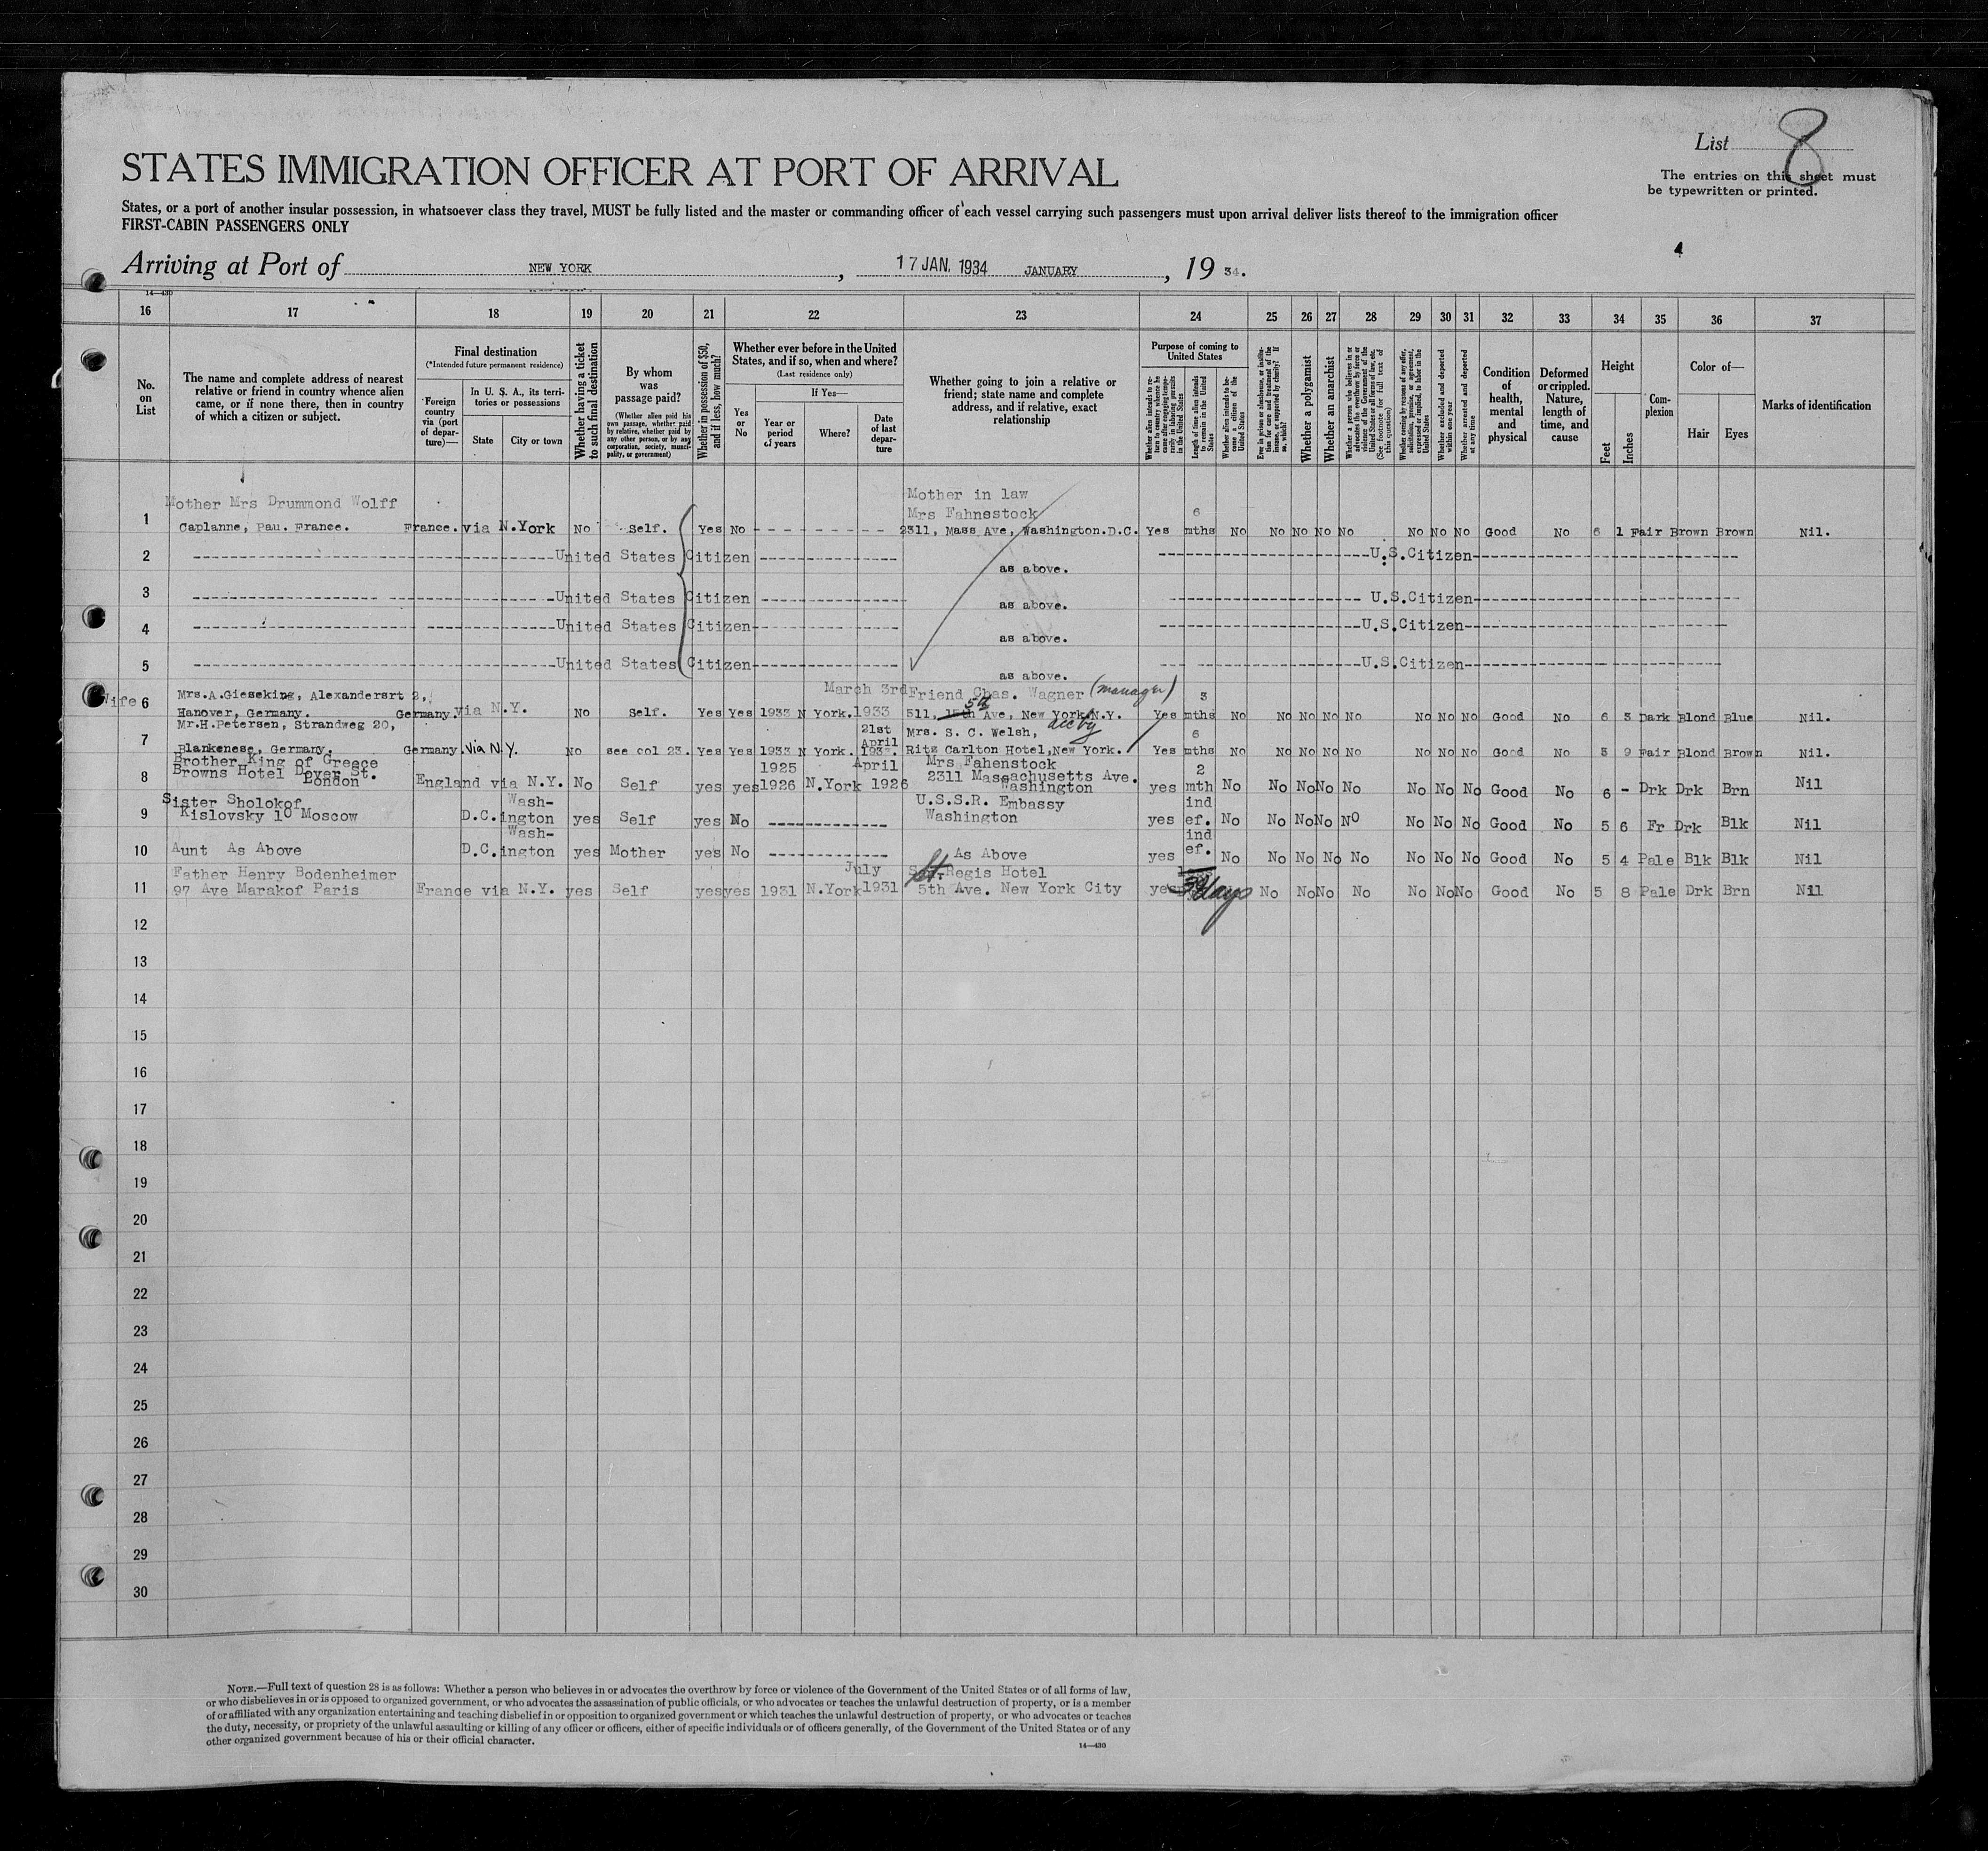 List 8
The entries on this sheet must
be typewritten or printed.
STATES IMMIGRATION OFFICER AT PORT OF ARRIVAL
States, or a port of another insular possession, in whatsoever class they travel, MUST be fully listed and the master or commanding officer of each vessel carrying such passengers must upon arrival deliver lists thereof to the immigration officer
FIRST-CABIN PASSENGERS ONLY
Arriving at Port of NEW YORK, 17 JAN. 1934 JANUARY, 19 34.
14—430
16 17 18 19 20 21 22 23 24 25 26 27 28 29 30 31 32 33 34 35 36 37
No. on List
The name and complete address of nearest
relative or friend in country whence alien
came, or if none there, then in country
of which a citizen or subject.
Final destination
(*Intended future permanent residence)
Foreign country via (port of departure)—
In U. S. A., its territories or possessions
State
City or town
Whether having a ticket to such final destination
By whom was passage paid?
(Whether alien paid his own passage, whether paid by relative, whether paid by any other person, or by any corporation, society, municipality, or government)
Whether in possession of $50, and if less, how much?
Whether ever before in the United States, and if so, when and where?
(Last residence only)
Yes or No
If Yes—
Year or period of years
Where?
Date of last departure
Whether going to join a relative or
friend; state name and complete
address, and if relative, exact
relationship
Purpose of coming to United States
Whether alien intends to return to country whence he came after engaging temporarily in laboring pursuits in the United States
Length of time alien intends to remain in the United States
Whether alien intends to become a citizen of the United States
Ever in prison or almshouse, or institution for care and treatment of the insane, or supported by charity? If so, which?
Whether a polygamist
Whether an anarchist
Whether a person who believes in or advocates the overthrow by force or violence of the Government of the United States or all forms of law, etc. (See footnote for full text of this question)
Whether coming by reason of any offer, solicitation, promise, or agreement, expressed or implied, to labor in the United States
Whether excluded and deported within one year
Whether arrested and deported at any time
Condition of health, mental and physical
Deformed or crippled. Nature, length of time, and cause
Height
Feet
Inches
Complexion
Color of—
Hair
Eyes
Marks of identification
Mother Mrs Drummond Wolff Mother in law
Mrs Fahnestock 6
1 Caplanne, Pau. France. France. via N.York No Self. Yes No 2311, Mass Ave, Washington.D.C. Yes mths No No No No No No No No Good No 6 1 Fair Brown Brown Nil.
2 United States Citizen as above. U.S.Citizen
3 United States Citizen as above. U.S.Citizen
4 United States Citizen as above. U.S.Citizen
5 United States Citizen as above. U.S.Citizen
Wife 6 Mrs.A.Gieseking, Alexanderstr 2, March 3rd Friend Chas. Wagner (manager) 3
Hanover, Germany. Germany. via N.Y. No Self. Yes Yes 1933 N York. 1933 511, 15th 5th Ave, New York N.Y. Yes mths No No No No No No No No Good No 6 3 Dark Blond Blue Nil.
7 Mr.H.Petersen, Strandweg 20, 21st April Mrs. S. C. Welsh, 6
Blankenese, Germany. Germany. Via N.Y. No see col 23. Yes Yes 1933 N York. 1933. Ritz Carlton Hotel,New York. Yes mths No No No No No No No No Good No 5 9 Fair Blond Brown Nil.
Brother King of Greece 1925 April Mrs Fahenstock 2
8 Browns Hotel Dover St. London England via N.Y. No Self yes yes 1926 N.York 1926 2311 Massachusetts Ave. Washington yes mth No No No No No No No No Good No 6 - Drk Drk Brn Nil
Sister Sholokof Wash- U.S.S.R. Embassy ind
9 Kislovsky 10 Moscow D.C. ington yes Self yes No Washington yes ef. No No No No No No No No Good No 5 6 Fr Drk Blk Nil
Wash- ind
10 Aunt As Above D.C. ington yes Mother yes No As Above yes ef. No No No No No No No No Good No 5 4 Pale Blk Blk Nil
Father Henry Bodenheimer July St. Regis Hotel
11 97 Ave Marakof Paris France via N.Y. yes Self yes yes 1931 N.York 1931 5th Ave. New York City yes days No No No No No No No Good No 5 8 Pale Drk Brn Nil
12
13
14
15
16
17
18
19
20
21
22
23
24
25
26
27
28
29
30
NOTE.—Full text of question 28 is as follows: Whether a person who believes in or advocates the overthrow by force or violence of the Government of the United States or of all forms of law,
or who disbelieves in or is opposed to organized government, or who advocates the assassination of public officials, or who advocates or teaches the unlawful destruction of property, or is a member
of or affiliated with any organization entertaining and teaching disbelief in or opposition to organized government or which teaches the unlawful destruction of property, or who advocates or teaches
the duty, necessity, or propriety of the unlawful assaulting or killing of any officer or officers, either of specific individuals or of officers generally, of the Government of the United States or of any
other organized government because of his or their official character.
14—430